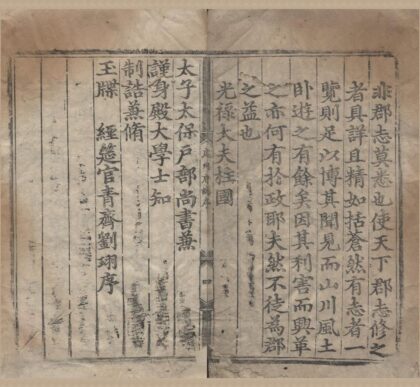 非郡志莫悉也使天下郡志修之
者具詳且精如括蒼然有志者一
覽則足以博其聞見而山川風土
卧遊之有餘矣因其利害而興革
之亦何有於政耶夫然不徒爲郡
之益也
光祿大夫柱國
太子太保戶部尚書兼
謹身殿大學士知
制誥兼脩
玉牒 經筵官青齊劉珝序
四